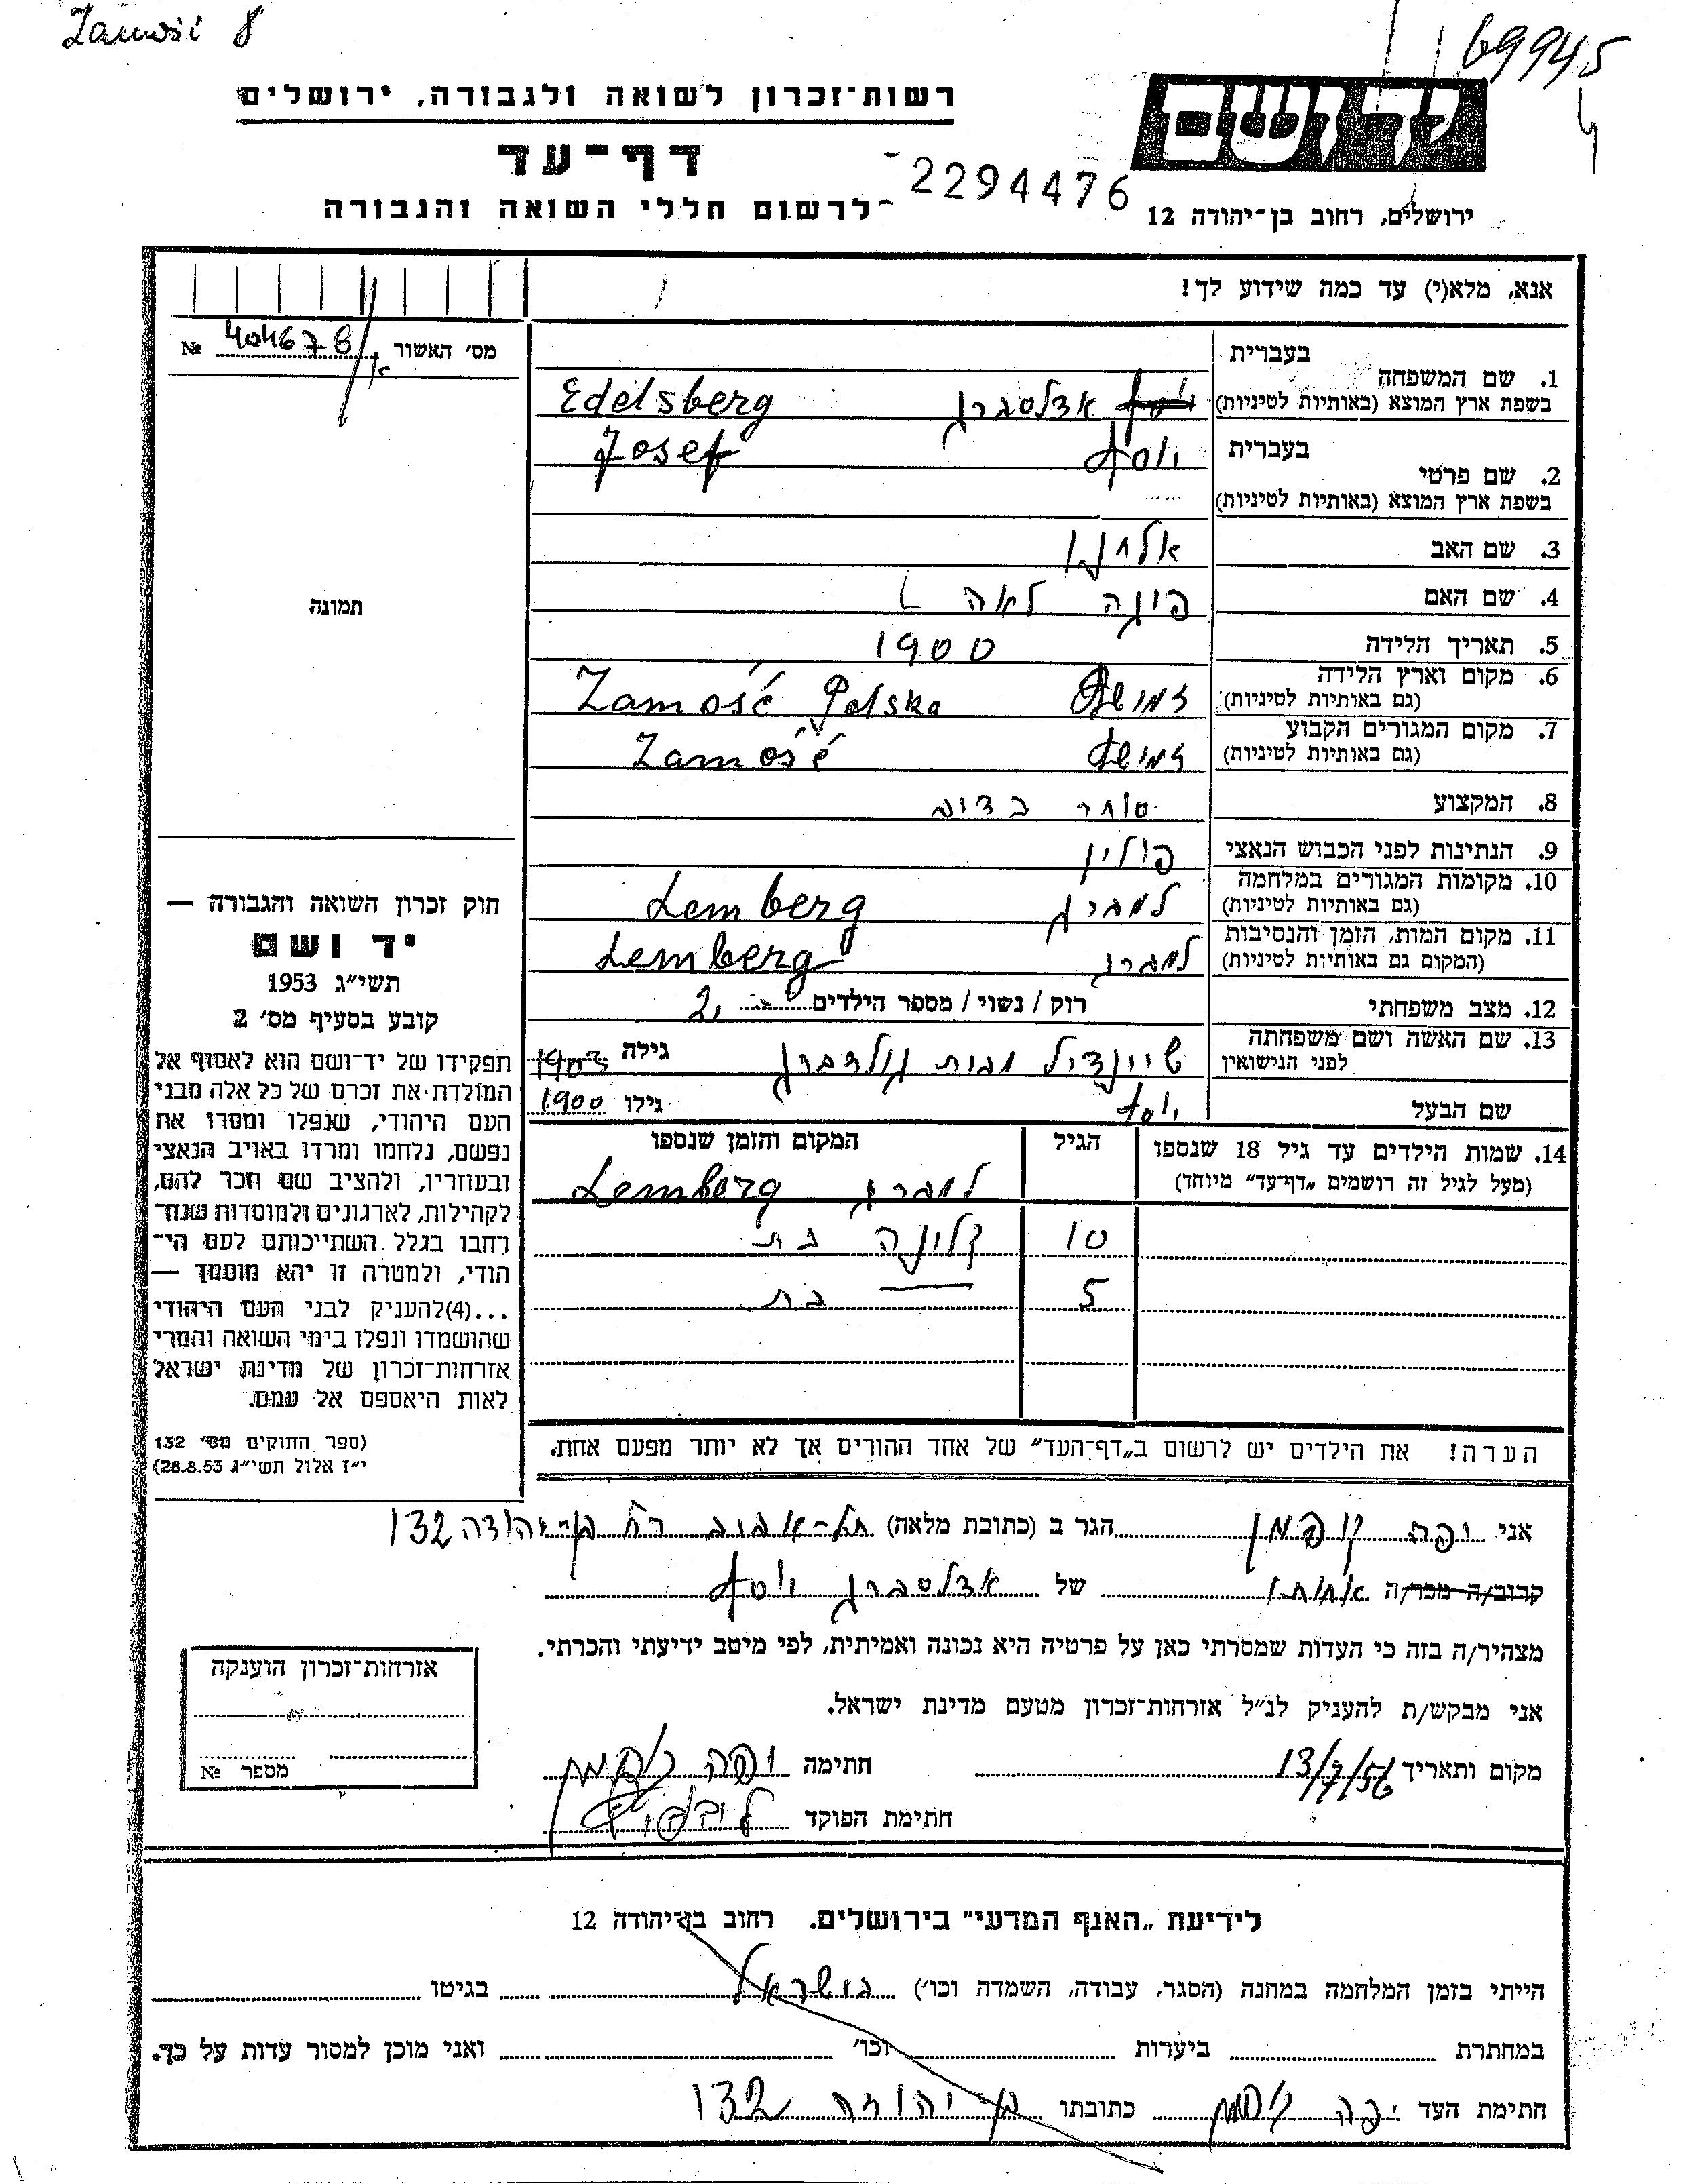 Zamość 8
69945
רשות־זכרון לשואה ולגבורה, ירושלים
יד ושם
דף־עד
2294476
לרשום חללי השואה והגבורה
ירושלים, רחוב בן־יהודה 12
אנא, מלא(י) עד כמה שידוע לך!
מס׳ האשור 404676 №
1. שם המשפחה
בעברית
בשפת ארץ המוצא (באותיות לטיניות) אדלסברג Edelsberg
2. שם פרטי
בעברית יוסף Josef
בשפת ארץ המוצא (באותיות לטיניות)
3. שם האב אלחנן
4. שם האם פיגה לאה
5. תאריך הלידה 1900
6. מקום וארץ הלידה
(גם באותיות לטיניות) זמושץ Zamość Polska
7. מקום המגורים הקבוע
(גם באותיות לטיניות) זמושץ Zamość
8. המקצוע סוחר בדים
9. הנתינות לפני הכבוש הנאצי פולין
10. מקומות המגורים במלחמה
(גם באותיות לטיניות) למברג Lemberg
11. מקום המות, הזמן והנסיבות
(המקום גם באותיות לטיניות) למברג Lemberg
12. מצב משפחתי רוק / נשוי / מספר הילדים 2
13. שם האשה ושם משפחתה
לפני הנישואין שיינדיל מבית גולדברג גילה 1903
שם הבעל יוסף גילו 1900
14. שמות הילדים עד גיל 18 שנספו
(מעל לגיל זה רושמים „דף־עד״ מיוחד)
הגיל
המקום והזמן שנספו
למברג Lemberg
10 בת
5 בת
הערה! את הילדים יש לרשום ב„דף־העד״ של אחד ההורים אך לא יותר מפעם אחת.
תמונה
חוק זכרון השואה והגבורה —
יד ושם
תשי״ג 1953
קובע בסעיף מס׳ 2
תפקידו של יד־ושם הוא לאסוף אל
המולדת את זכרם של כל אלה מבני
העם היהודי, שנפלו ומסרו את
נפשם, נלחמו ומרדו באויב הנאצי
ובעוזריו, ולהציב שם וזכר להם,
לקהילות, לארגונים ולמוסדות שנח־
רבו בגלל השתייכותם לעם הי־
הודי, ולמטרה זו יהא מוסמך —
...(4)להעניק לבני העם היהודי
שהושמדו ונפלו בימי השואה והמרי
אזרחות־זכרון של מדינת ישראל
לאות היאספם אל עמם.
(ספר החוקים מס׳ 132
י״ז אלול תשי״ג 28.8.53)
אני יפה קופמן הגר ב (כתובת מלאה) תל-אביב רח בן-יהודה 132
קרוב/ה מכר/ה אחותו של אדלסברג יוסף
מצהיר/ה בזה כי העדות שמסרתי כאן על פרטיה היא נכונה ואמיתית, לפי מיטב ידיעתי והכרתי.
אני מבקש/ת להעניק לנ״ל אזרחות־זכרון מטעם מדינת ישראל.
מקום ותאריך 13/7/56 חתימה יפה קופמן
חתימת הפוקד
אזרחות־זכרון הוענקה
מספר №
לידיעת „האגף המדעי״ בירושלים. רחוב בן־יהודה 12
הייתי בזמן המלחמה במחנה (הסגר, עבודה, השמדה וכו׳) בישראל בגיטו
במחתרת ביערות וכו׳ ואני מוכן למסור עדות על כך.
חתימת העד יפה קופמן כתובתו בן יהודה 132